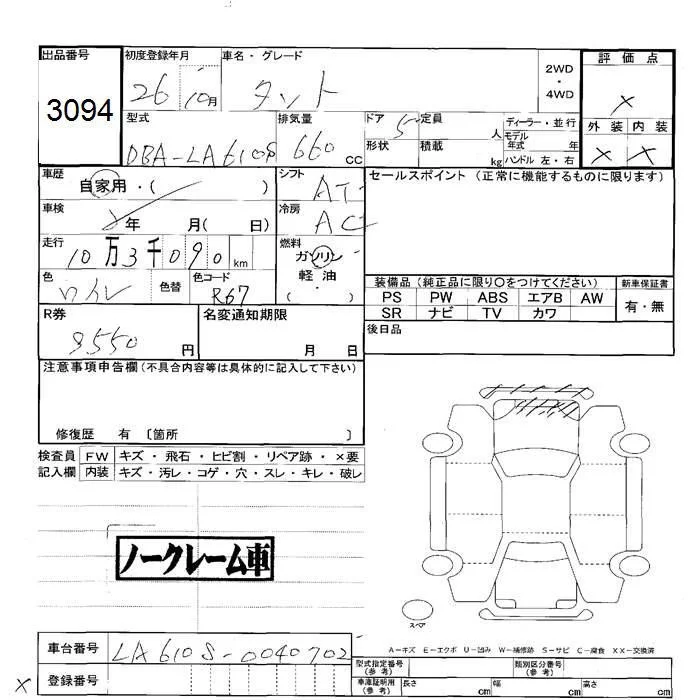 出品番号 初度登録年月 車名・グレード 2WD 評価点
3094 26 10月 タント ・4WD ×
型式 排気量 ドア 5 定員 人 ディーラー・並行 外装 内装
DBA-LA610S 660 CC 形状 積載 kg モデル年式 年 × ×
ハンドル 左・右
車歴 自家用・( ) シフト AT セールスポイント (正常に機能するものに限ります)
車検 年 月( 日) 冷房 AC
走行 10万3千090 km 燃料 ガソリン
軽油
( )
色 色替 色コード R67 装備品 (純正品に限り○をつけてください) 新車保証書
PS PW ABS エアB AW 有・無
SR ナビ TV カワ
R券 名変通知期限 後日品
8550 円 月 日
注意事項申告欄(不具合内容等は具体的に記入して下さい)
修復歴 有 〔箇所 〕
検査員 FW キズ・飛石・ヒビ割・リペア跡・×要
記入欄 内装 キズ・汚レ・コゲ・穴・スレ・キレ・破レ
ノークレーム車
スペア
A-キズ E-エクボ U-凹み W-補修跡 S-サビ C-腐食 XX-交換済
車台番号 LA610S-0040702 型式指定番号 (参考) 類別区分番号 (参考)
× 登録番号 車庫証明用 (参考) 長さ cm 幅 cm 高さ cm